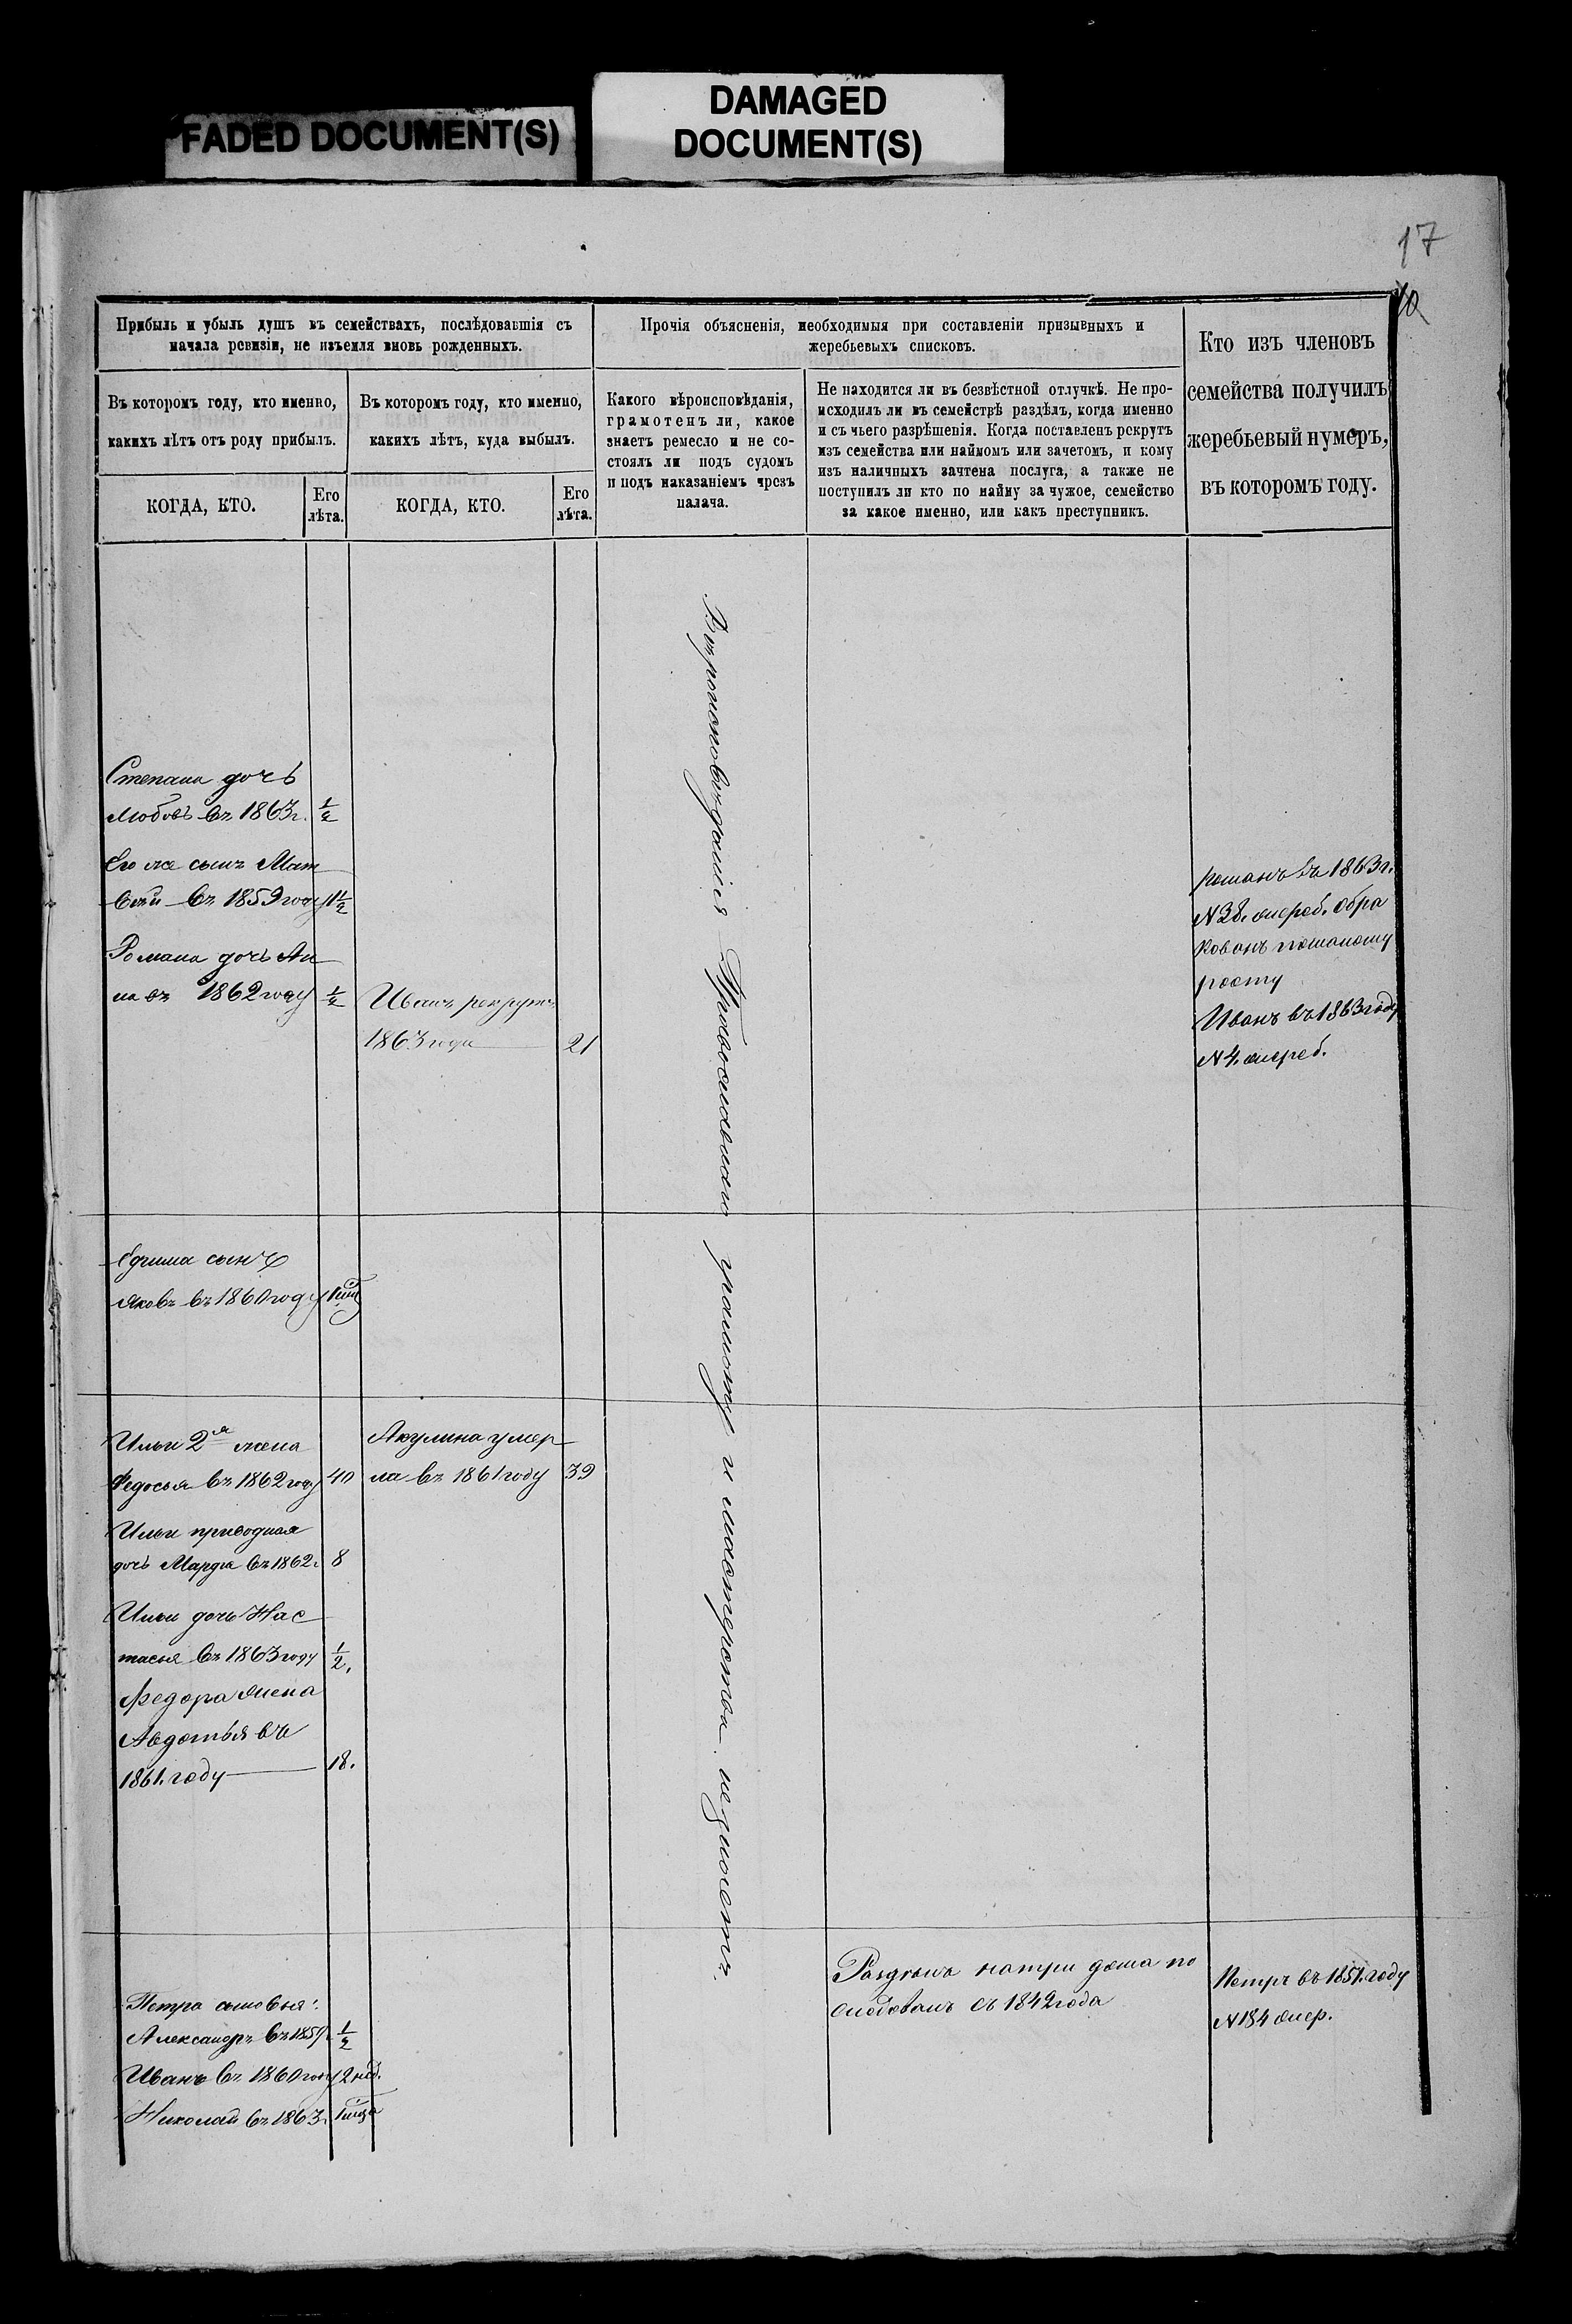 FADED DOCUMENT(S)
DAMAGED
DOCUMENT(S)
17
Прибыль и убыль душъ въ семействахъ, послѣдовавшія съ
начала ревизіи, не изъемля вновь рожденныхъ.
Въ которомъ году, кто именно,
какихъ лѣтъ отъ роду прибылъ.
Въ которомъ году, кто именно,
какихъ лѣтъ, куда выбылъ.
КОГДА, КТО.
Его
лѣта.
КОГДА, КТО.
Его
лѣта.
Прочія объясненія, необходимыя при составленіи призывныхъ и
жеребьевыхъ списковъ.
Какого вѣроисповѣданія,
грамотенъ ли, какое
знаетъ ремесло и не со-
стоялъ ли подъ судомъ
и подъ наказаніемъ чрезъ
палача.
Не находится ли въ безвѣстной отлучкѣ. Не про-
исходилъ ли въ семействѣ раздѣлъ, когда именно
и съ чьего разрѣшенія. Когда поставленъ рекрутъ
изъ семейства или наймомъ или зачетомъ, и кому
изъ наличныхъ зачтена послуга, а также не
поступилъ ли кто по найму за чужое, семейство
за какое именно, или какъ преступникъ.
Кто изъ членовъ
семейства получилъ
жеребьевый нумеръ,
въ которомъ году.
Степана дочь
Любовь въ 1863 г. 1/2
Его же сынъ Мат
вѣй въ 1859 году 1 1/2
Романа дочь Ан
на въ 1862 году 1/2
Иванъ рекрутъ
1863 года 21
Вѣроисповѣданія Православнаго грамоты и мастерства незнаетъ.
Романъ въ 1863 г.
N 38. жереб.
Иванъ въ 1863 году
N 4. жереб.
сынъ
Яковъ въ 1860 году
Ильи 2я жена
Федосья въ 1862 году 40
Акулина умер
ла въ 1861 году 39
Ильи приводная
дочь Марфа въ 1862 г. 8
Ильи дочь Нас
тасья въ 1863 году 1/2.
Федора жена
Авдотья въ
1861. году 18.
Петра сыновья:
Александръ въ 1859 1/2
Иванъ въ 1860 году 2 нед.
Николай въ 1863
на три дома по
съ 1842 года
Петръ въ 1851. году
N 184 жер.